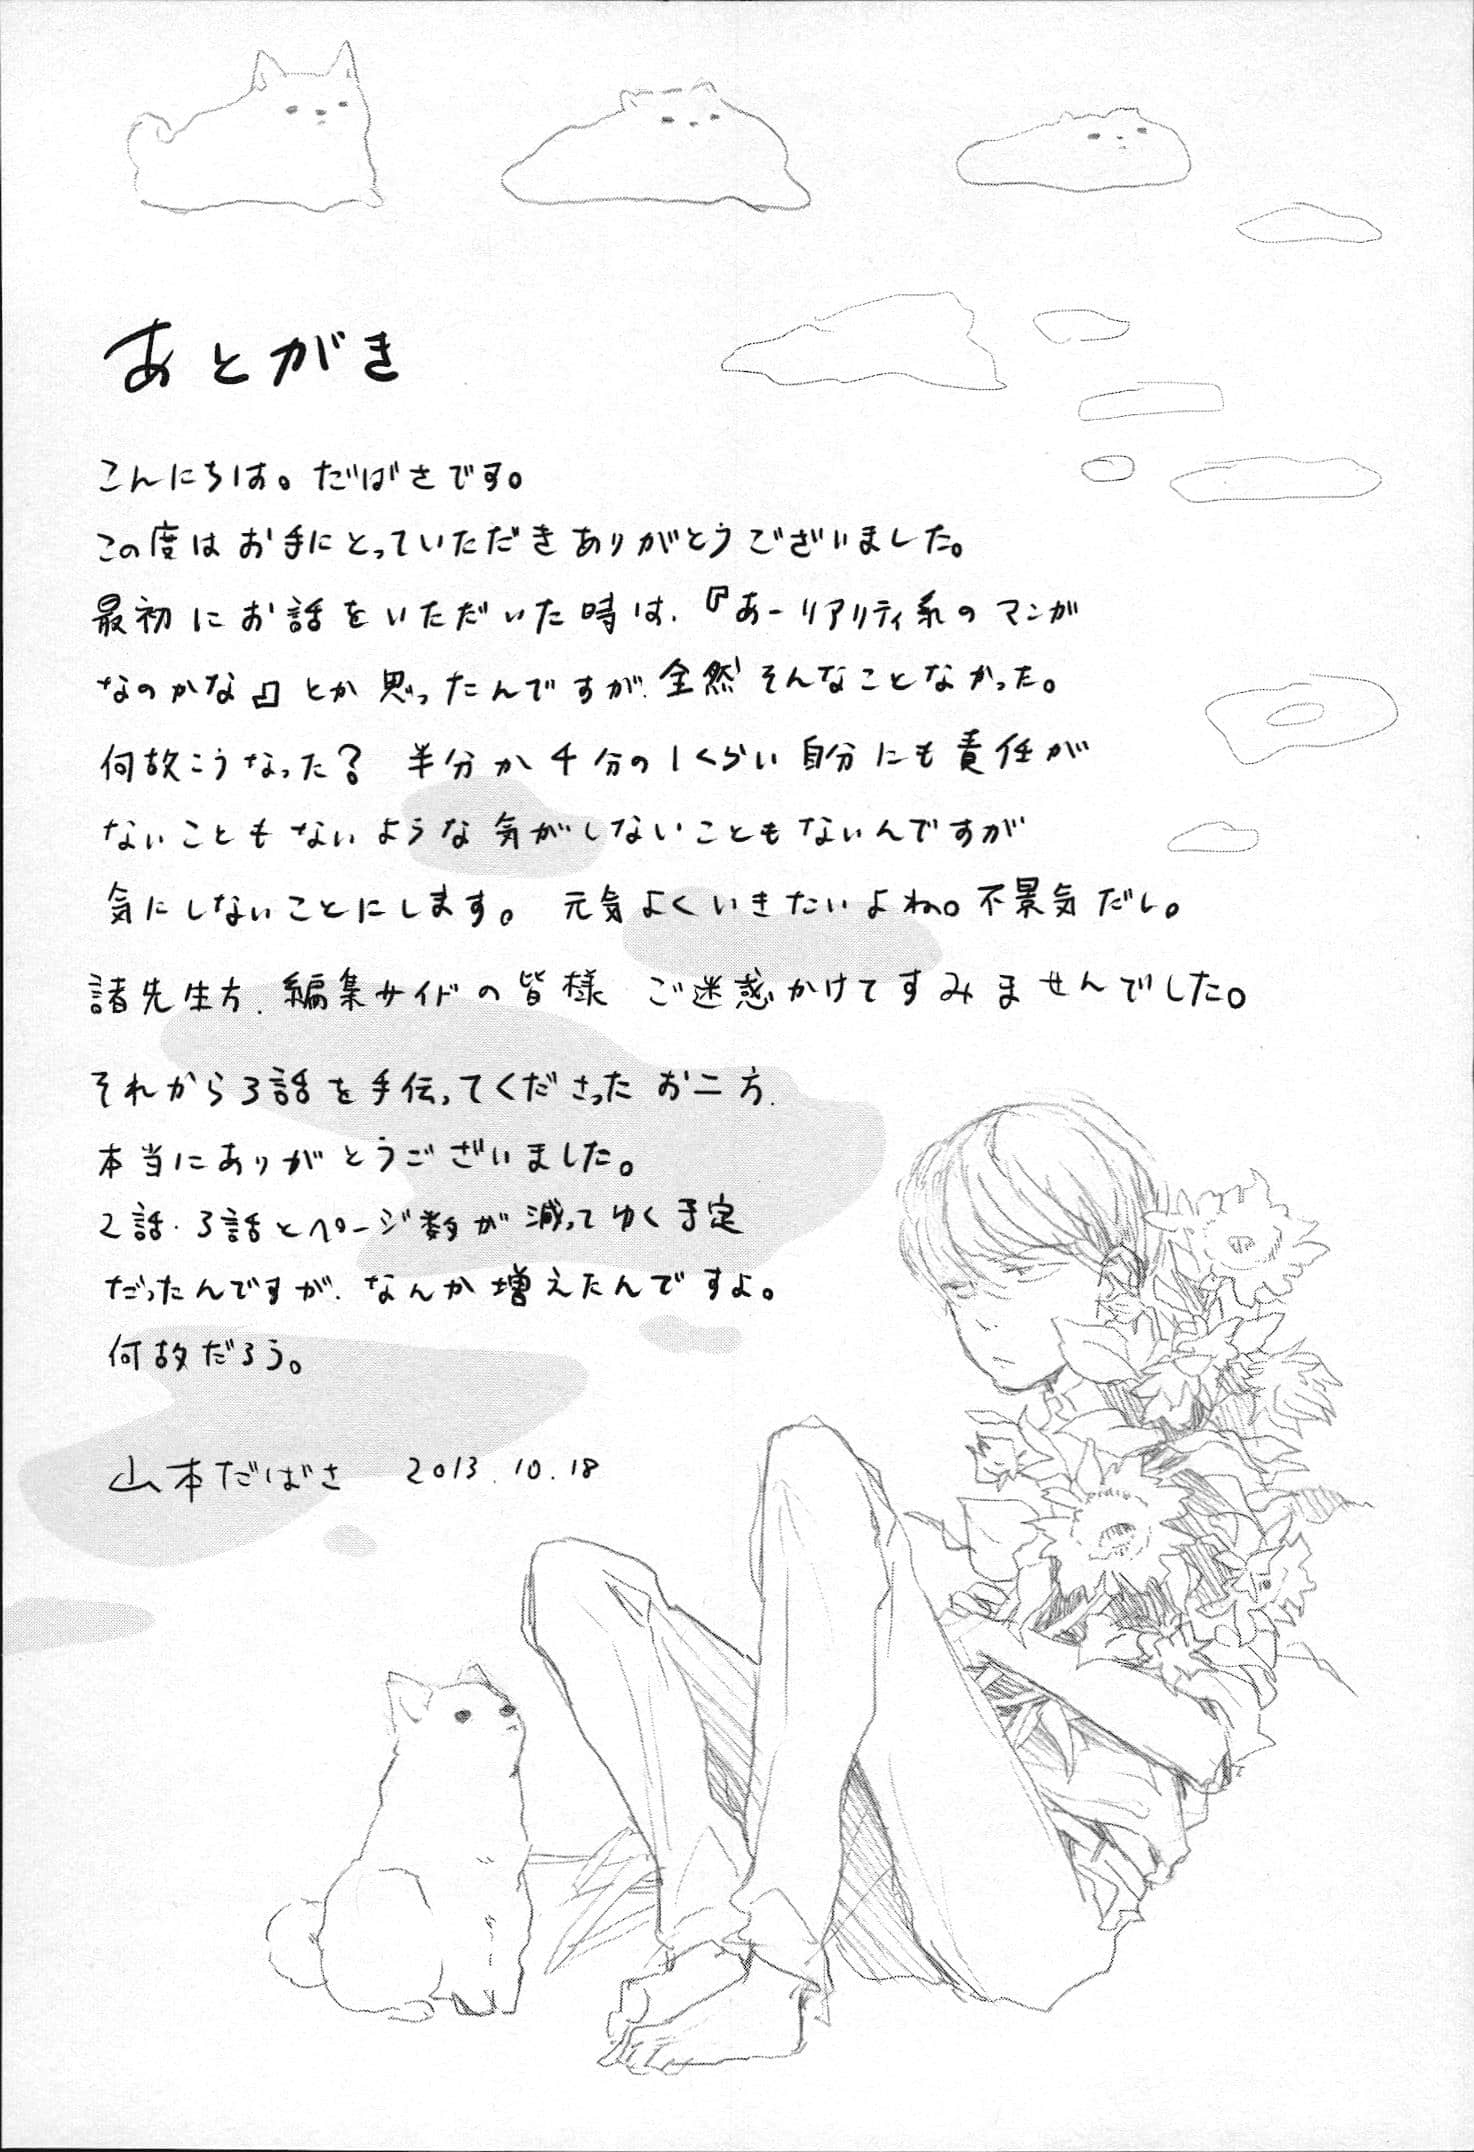 あとがき
こんにちは。だばさです。
この度はお手にとっていただきありがとうございました。
最初にお話をいただいた時は、『あーリアリティ系のマンガ
なのかな』とか思ったんですが、全然そんなことなかった。
何故こうなった？ 半分か千分の1くらい自分にも責任が
ないこともないような気がしないこともないんですが
気にしないことにします。 元気よくいきたいよね。不景気だし。
諸先生方、編集サイドの皆様 ご迷惑かけてすみませんでした。
それから3話を手伝ってくださったお二方、
本当にありがとうございました。
2話・3話とページ数が減ってゆく予定
だったんですが、なんか増えたんですよ。
何故だろう。
山本だばさ 2013.10.18